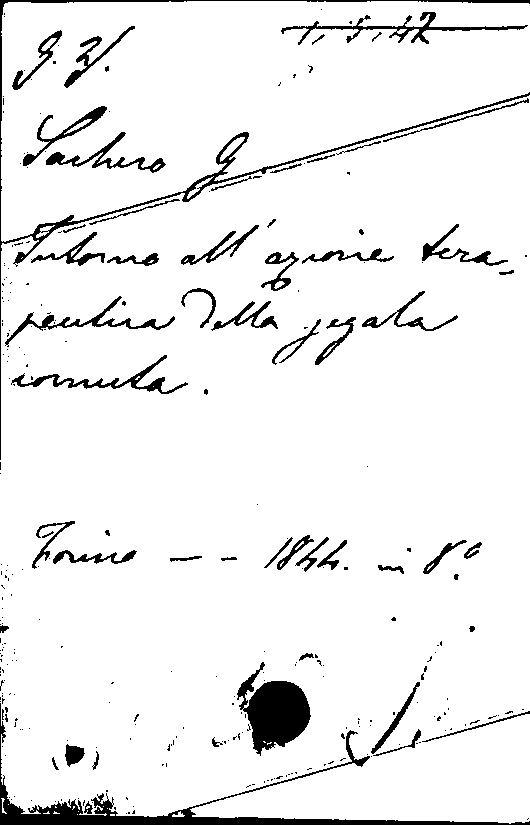 1, 5, 42
G. Z.
Sachero G.
Intorno all'azione tera-
peutica della segala
cornuta.
Torino - - 1844. in 8.º